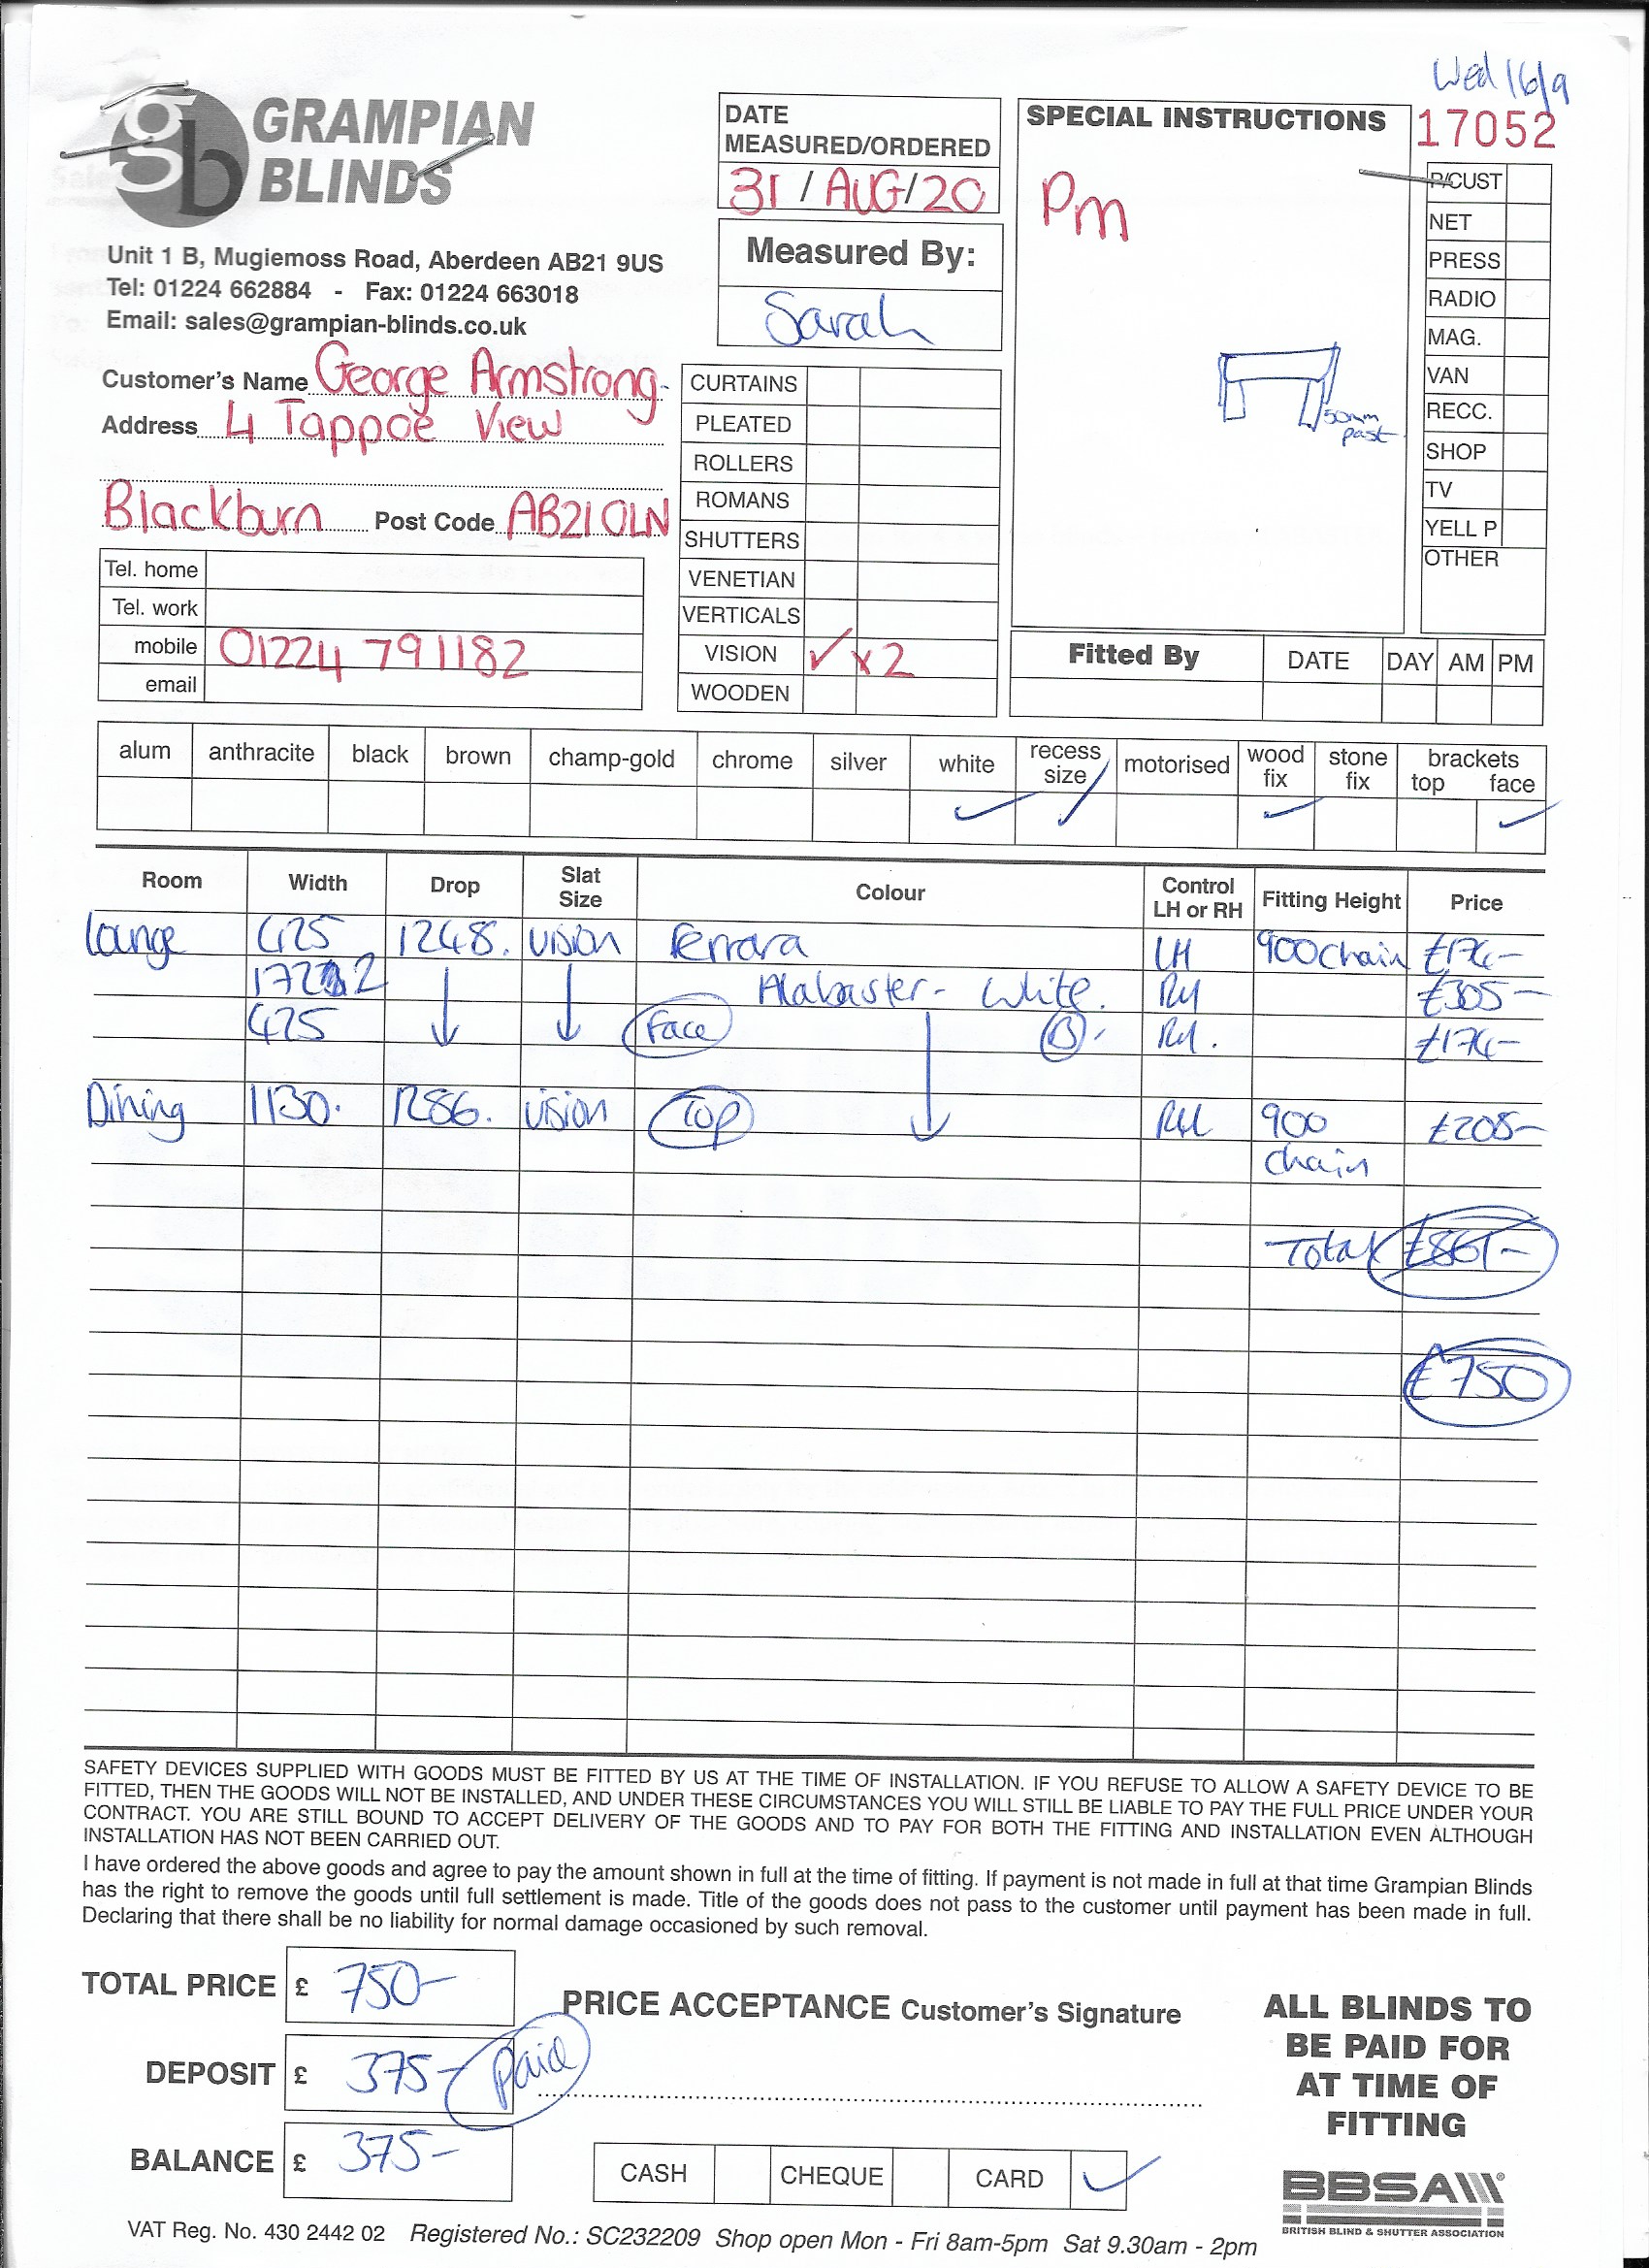 Wed 16/9
GRAMPIAN
BLINDS
Unit 1 B, Mugiemoss Road, Aberdeen AB21 9US
Tel: 01224 662884 - Fax: 01224 663018
Email: sales@grampian-blinds.co.uk
DATE
MEASURED/ORDERED
31 / AUG / 20
Measured By:
Sarah
SPECIAL INSTRUCTIONS
Pm
50mm
past
17052
P/CUST
NET
PRESS
RADIO
MAG.
VAN
RECC.
SHOP
TV
YELL P
OTHER
Customer's Name George Armstrong.
Address 4 Tappoe View
Blackburn Post Code AB21 0LN
Tel. home
Tel. work
mobile 01224 791182
email
CURTAINS
PLEATED
ROLLERS
ROMANS
SHUTTERS
VENETIAN
VERTICALS
VISION ✓ x 2
WOODEN
Fitted By DATE DAY AM PM
alum anthracite black brown champ-gold chrome silver white recess size motorised wood fix stone fix brackets top face
✓ ✓ ✓ ✓
Room Width Drop Slat Size Colour Control LH or RH Fitting Height Price
Lounge 425 1248. vision Ferrara LH 900 chain £174-
1722 Alabaster - White. RH £305-
425 Face B. RH. £174-
Dining 1130. 1286. vision Top RH 900 £208-
chain
Total £861-
£750
SAFETY DEVICES SUPPLIED WITH GOODS MUST BE FITTED BY US AT THE TIME OF INSTALLATION. IF YOU REFUSE TO ALLOW A SAFETY DEVICE TO BE
FITTED, THEN THE GOODS WILL NOT BE INSTALLED, AND UNDER THESE CIRCUMSTANCES YOU WILL STILL BE LIABLE TO PAY THE FULL PRICE UNDER YOUR
CONTRACT. YOU ARE STILL BOUND TO ACCEPT DELIVERY OF THE GOODS AND TO PAY FOR BOTH THE FITTING AND INSTALLATION EVEN ALTHOUGH
INSTALLATION HAS NOT BEEN CARRIED OUT.
I have ordered the above goods and agree to pay the amount shown in full at the time of fitting. If payment is not made in full at that time Grampian Blinds
has the right to remove the goods until full settlement is made. Title of the goods does not pass to the customer until payment has been made in full.
Declaring that there shall be no liability for normal damage occasioned by such removal.
TOTAL PRICE £ 750-
DEPOSIT £ 375- Paid
BALANCE £ 375-
PRICE ACCEPTANCE Customer's Signature
CASH CHEQUE CARD ✓
ALL BLINDS TO
BE PAID FOR
AT TIME OF
FITTING
BBSA
BRITISH BLIND & SHUTTER ASSOCIATION
VAT Reg. No. 430 2442 02 Registered No.: SC232209 Shop open Mon - Fri 8am-5pm Sat 9.30am - 2pm